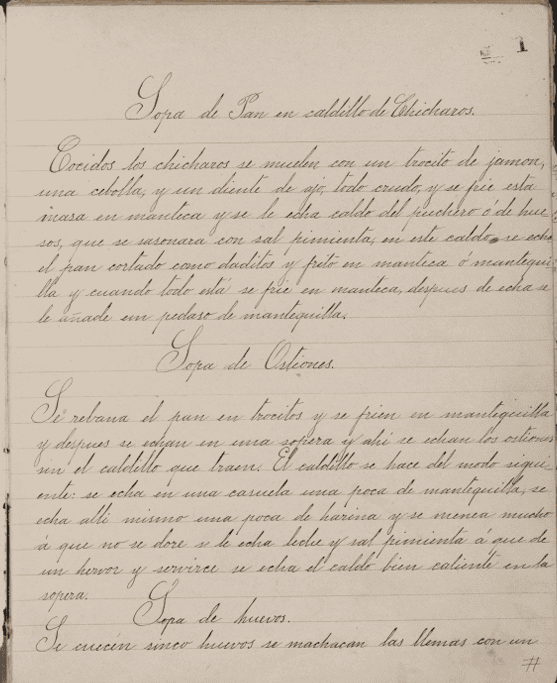 1
Sopa de Pan en caldillo de Chicharos.
Cocidos los chicharos se muelen con un trocito de jamon,
una cebolla, y un diente de ajo, todo crudo, y se frie esta
masa en manteca y se le echa caldo del puchero ó de hue
sos, que se sasonara con sal pimienta, en este caldo se echa
el pan cortado como daditos y frito en manteca ó mantequi
lla y cuando todo está se frie en manteca, despues de echa se
le añade un pedaso de mantequilla.
Sopa de Ostiones.
Se rebana el pan en trocitos y se frien en mantequilla
y despues se echan en una sopera y ahi se echan los ostiones
sin el caldillo que traen. El caldillo se hace del modo sigui-
ente: se echa en una casuela una poca de mantequilla, se
echa alli mismo una poca de harina y se menea mucho
á que no se dore se le echa leche y sal pimienta á que de
un hervor y servirce se echa el caldo bien caliente en la
sopera.
Sopa de huevos.
Se cuecén sinco huevos se machacan las llemas con un
#